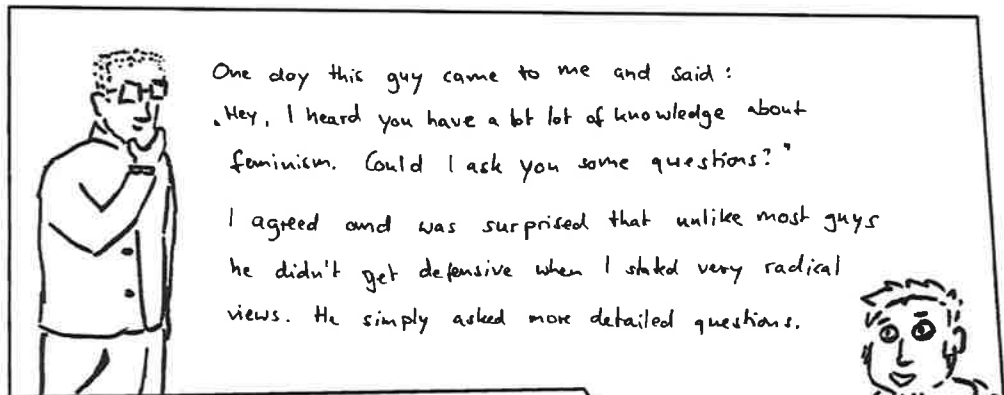 One day this guy came to me and said:
"Hey, I heard you have a lot lot of knowledge about
feminism. Could I ask you some questions?"
I agreed and was surprised that unlike most guys
he didn't get defensive when I stated very radical
views. He simply asked more detailed questions.